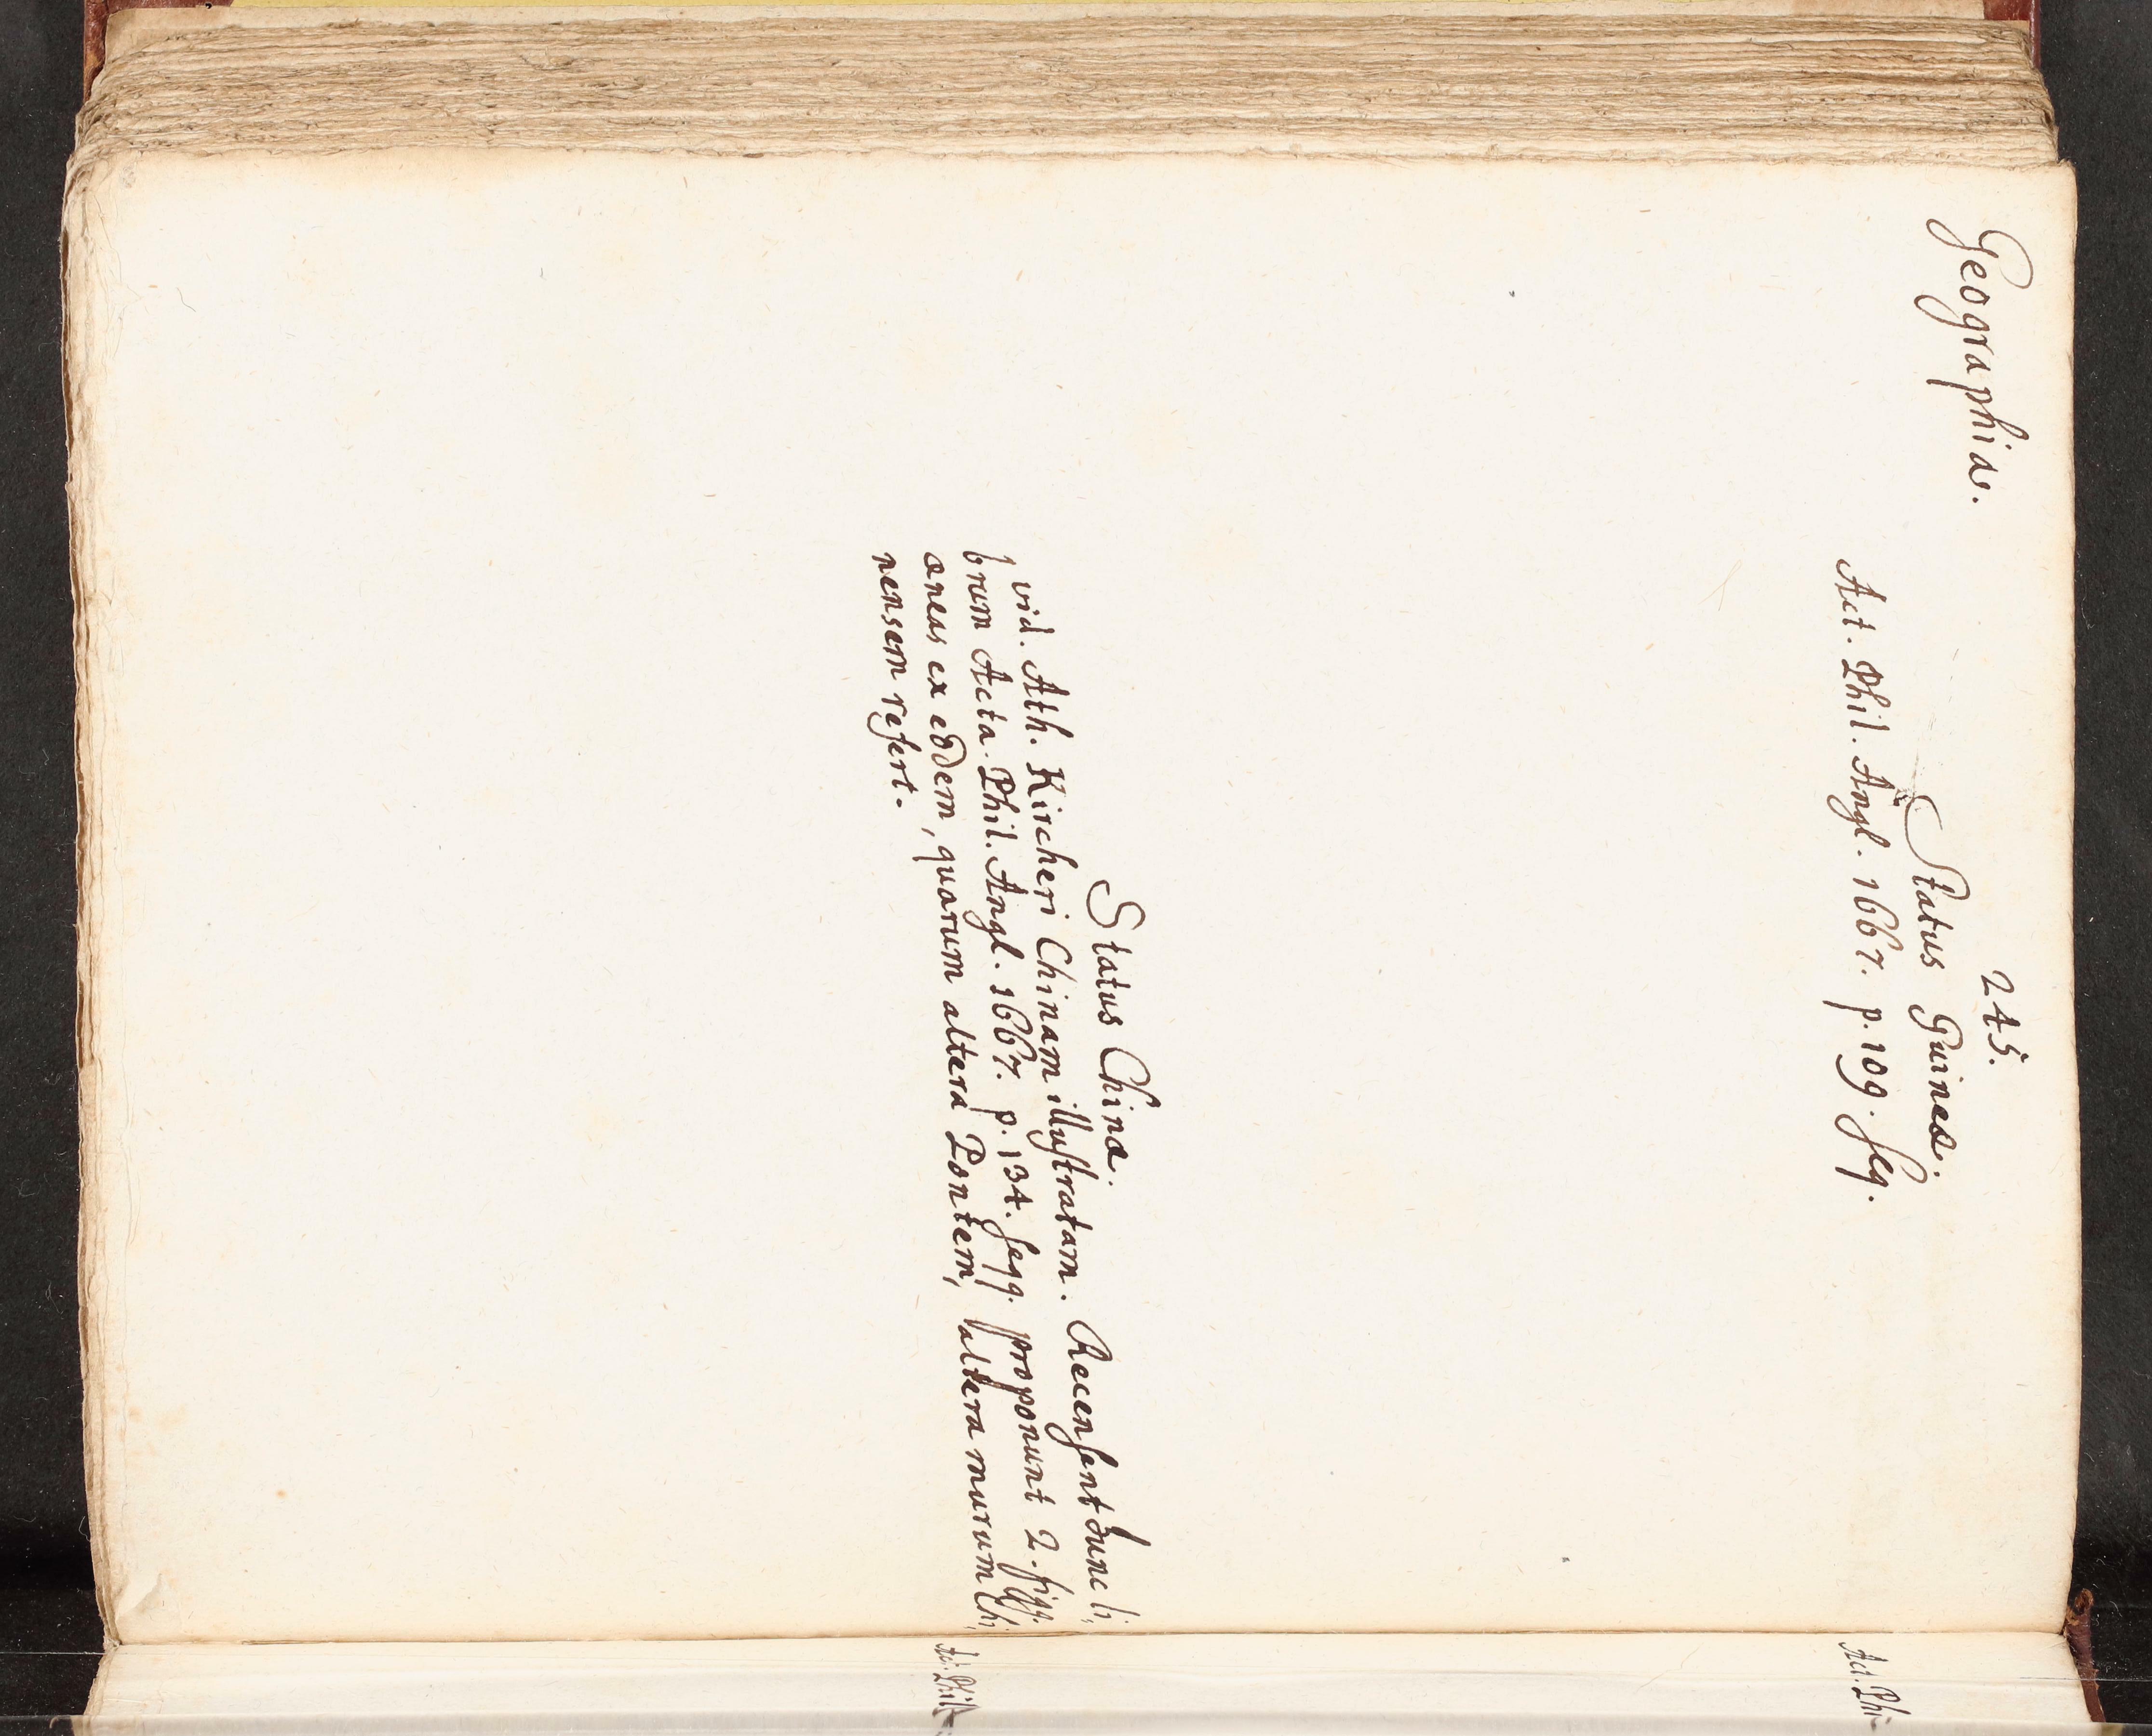 245.
Geographia.
Status Guineæ.
Act. Phil. Angl. 1667. p. 109. seq.
Status Chinæ.
vid. Ath. Kircheri Chinam illustratam. Recensent hunc li,
brum Acta Phil. Angl. 1667. p. 134. seqq. proponunt 2. figg.
æneas ex eodem, quarum altera Pontem, altera murum Chi,
nensem refert.
Act. Phi
Act. Phil. A